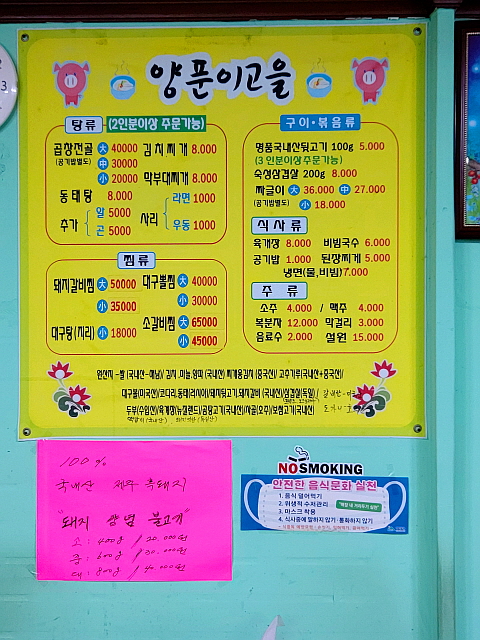 양푼이고을
탕류 (2인분이상 주문가능)
곱창전골 大 40000
(공기밥별도) 中 30000
小 20000
김치찌개 8.000
막부대찌개 8.000
동태탕 8.000
추가 알 5000
곤 5000
사리 라면 1000
우동 1000
찜류
돼지갈비찜 大 50000
小 35000
대구탕(지리) 小 18000
대구뽈찜 大 40000
小 30000
소갈비찜 大 65000
小 45000
구이·볶음류
명품국내산뒷고기 100g 5.000
(3인분이상주문가능)
숙성삼겹살 200g 8.000
짜글이 大 36.000 中 27.000
(공기밥별도) 小 18.000
식사류
육개장 8.000 비빔국수 6.000
공기밥 1.000 된장찌게 5.000
냉면(물,비빔)7.000
주류
소주 4.000 / 맥주 4.000
복분자 12.000 막걸리 3.000
음료수 2.000 설원 15.000
원산지 -쌀 (국내산-해남)/ 김치
고추가루(국내산+중국산)/
100%
국내산 제주 흑돼지
"돼지 양념 불고기"
소: 400g / 20.000원
중: 600g / 30.000원
대: 800g / 40.000원
NO SMOKING
안전한 음식문화 실천
1. 음식 덜어먹기
2. 위생적 수저관리
3. 마스크 착용
4. 식사중에 말하지 않기! 통화하지 않기